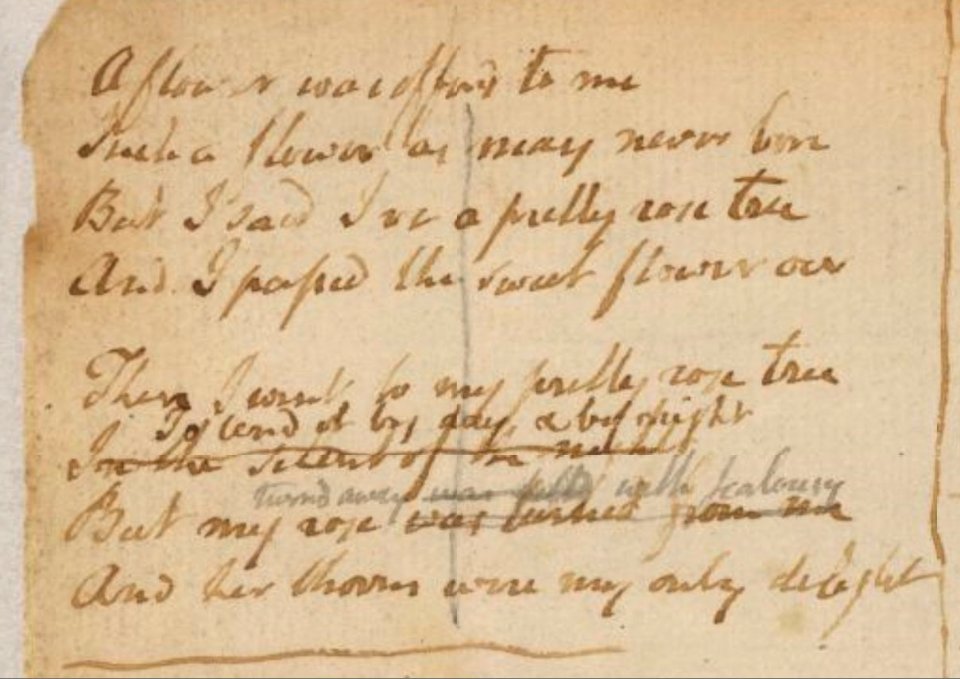 A flower was offerd to me
Such a flower as may never bore
But I said I've a pretty rose tree
And I passed the sweet flower oer
Then I went to my pretty rose tree
To tend it by day, & by night
In the silent of the night
turnd away was filld with jealousy
But my rose was turned from me
And her thorns were my only delight